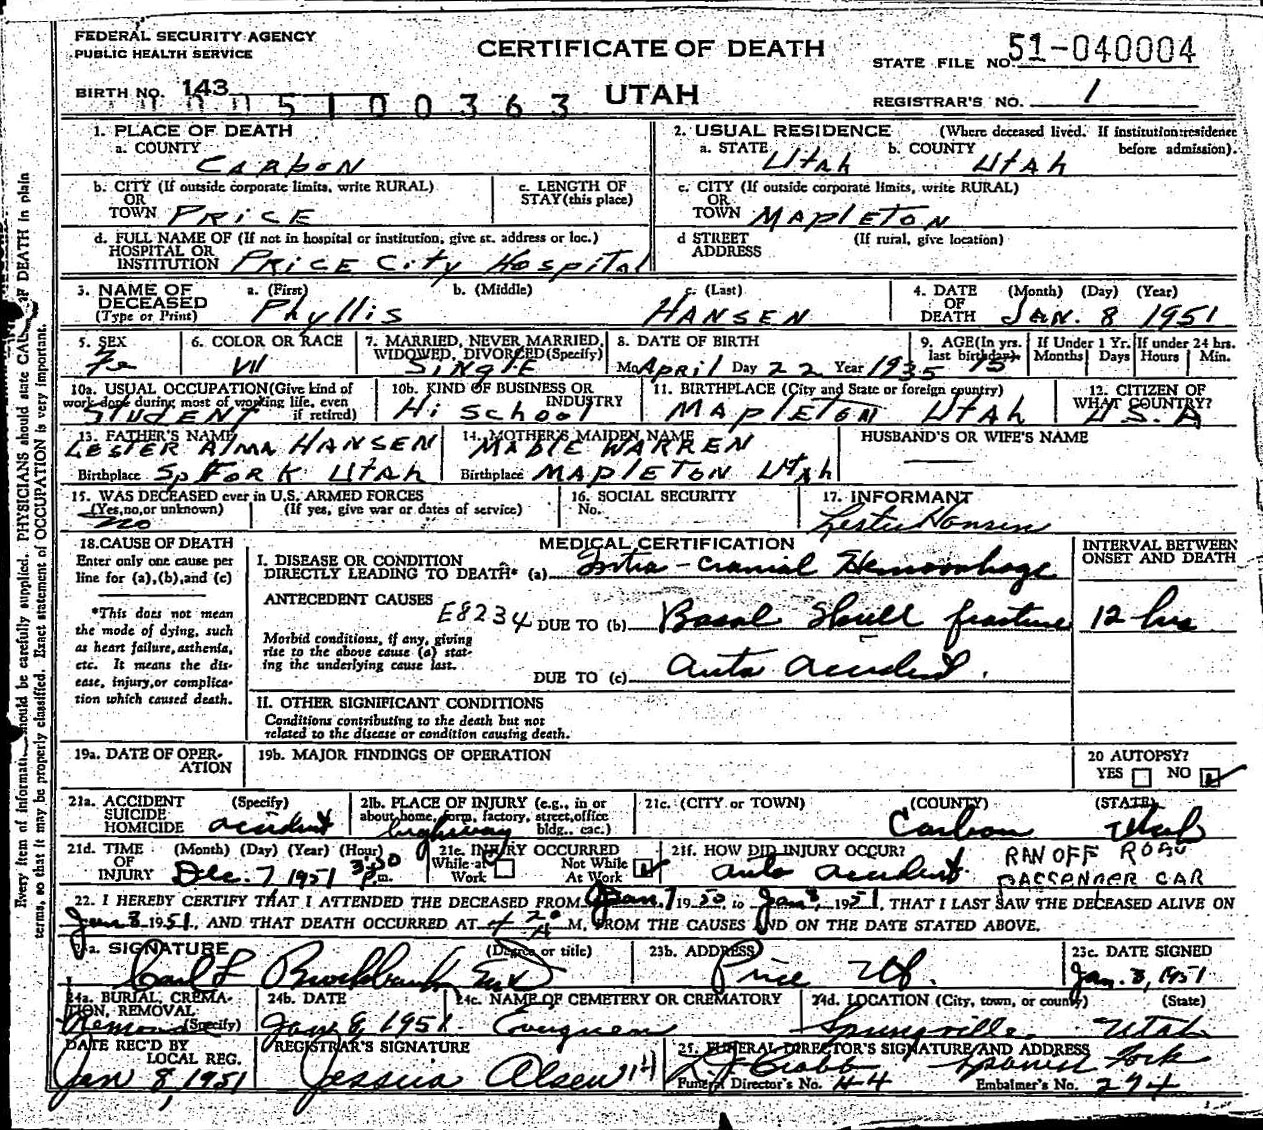 FEDERAL SECURITY AGENCY
PUBLIC HEALTH SERVICE
CERTIFICATE OF DEATH
STATE FILE NO. 51-040004
BIRTH NO. 143
05100363
UTAH
REGISTRAR'S NO. 1
1. PLACE OF DEATH
a. COUNTY
CARBON
2. USUAL RESIDENCE (Where deceased lived. If institution:residence before admission).
a. STATE Utah b. COUNTY Utah
b. CITY (If outside corporate limits, write RURAL)
OR
TOWN PRICE
c. LENGTH OF
STAY (this place)
c. CITY (If outside corporate limits, write RURAL)
OR
TOWN MAPLETON
d. FULL NAME OF (If not in hospital or institution, give st. address or loc.)
HOSPITAL OR
INSTITUTION PRICE City Hospital
d STREET (If rural, give location)
ADDRESS
3. NAME OF DECEASED (Type or Print)
a. (First) b. (Middle) c. (Last)
Phyllis HANSEN
4. DATE OF DEATH (Month) (Day) (Year)
JAN. 8 1951
5. SEX
Fe
6. COLOR OR RACE
W
7. MARRIED, NEVER MARRIED, WIDOWED, DIVORCED (Specify)
SINGLE
8. DATE OF BIRTH
Mo April Day 22 Year 1935
9. AGE (In yrs. last birthday) 15
If Under 1 Yr. Months Days
If under 24 hrs. Hours Min.
10a. USUAL OCCUPATION (Give kind of work done during most of working life, even if retired)
STUDENT
10b. KIND OF BUSINESS OR INDUSTRY
Hi School
11. BIRTHPLACE (City and State or foreign country)
MAPLETON Utah
12. CITIZEN OF WHAT COUNTRY?
U.S.A
13. FATHER'S NAME
LESTER Alma HANSEN
Birthplace Sp FORK Utah
14. MOTHER'S MAIDEN NAME
MABLE WARREN
Birthplace MAPLETON Utah
HUSBAND'S OR WIFE'S NAME
15. WAS DECEASED ever in U.S. ARMED FORCES
(Yes, no, or unknown) (If yes, give war or dates of service)
no
16. SOCIAL SECURITY
No.
17. INFORMANT
Lester Hansen
18. CAUSE OF DEATH
Enter only one cause per line for (a), (b), and (c)
*This does not mean the mode of dying, such as heart failure, asthenia, etc. It means the disease, injury, or complication which caused death.
MEDICAL CERTIFICATION
INTERVAL BETWEEN ONSET AND DEATH
I. DISEASE OR CONDITION
DIRECTLY LEADING TO DEATH* (a) Intra-cranial Hemorrhage
ANTECEDENT CAUSES E8234
DUE TO (b) Basal Skull fracture 12 hrs
Morbid conditions, if any, giving rise to the above cause (a) stating the underlying cause last.
DUE TO (c) auto accident.
II. OTHER SIGNIFICANT CONDITIONS
Conditions contributing to the death but not related to the disease or condition causing death.
19a. DATE OF OPERATION
19b. MAJOR FINDINGS OF OPERATION
20 AUTOPSY?
YES NO
21a. ACCIDENT SUICIDE HOMICIDE (Specify)
accident
21b. PLACE OF INJURY (e.g., in or about home, farm, factory, street, office bldg., etc.)
highway
21c. (CITY OR TOWN) (COUNTY) (STATE)
Carbon Utah
21d. TIME OF INJURY (Month) (Day) (Year) (Hour)
Dec. 7 1951 3:30 p.m.
21e. INJURY OCCURRED
While at Work
Not While At Work
21f. HOW DID INJURY OCCUR?
auto accident
RAN OFF ROAD
PASSENGER CAR
22. I HEREBY CERTIFY THAT I ATTENDED THE DECEASED FROM Jan. 7 1950, to Jan 8, 1951, THAT I LAST SAW THE DECEASED ALIVE ON
Jan 8 1951, AND THAT DEATH OCCURRED AT 4 20 A M, FROM THE CAUSES AND ON THE DATE STATED ABOVE.
23a. SIGNATURE (Degree or title)
Carl L Brockbank M D
23b. ADDRESS
Price Ut.
23c. DATE SIGNED
Jan. 8, 1951
24a. BURIAL, CREMATION, REMOVAL (Specify)
Removal
24b. DATE
Jan 8 1951
24c. NAME OF CEMETERY OR CREMATORY
Evergreen
24d. LOCATION (City, town, or county) (State)
Springville Utah
DATE REC'D BY LOCAL REG.
Jan 8, 1951
REGISTRAR'S SIGNATURE
Jessica Olsen
25. FUNERAL DIRECTOR'S SIGNATURE AND ADDRESS
Spanish Fork
Funeral Director's No. 44 Embalmer's No. 274
Every item of information should be carefully supplied. PHYSICIANS should state CAUSE OF DEATH in plain
terms, so that it may be properly classified. Exact statement of OCCUPATION is very important.